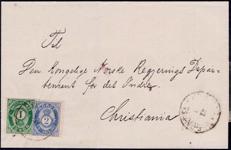 Til
Den kongelige Norske Regjerings Depar-
tement for det Indre
Christiania
1
2